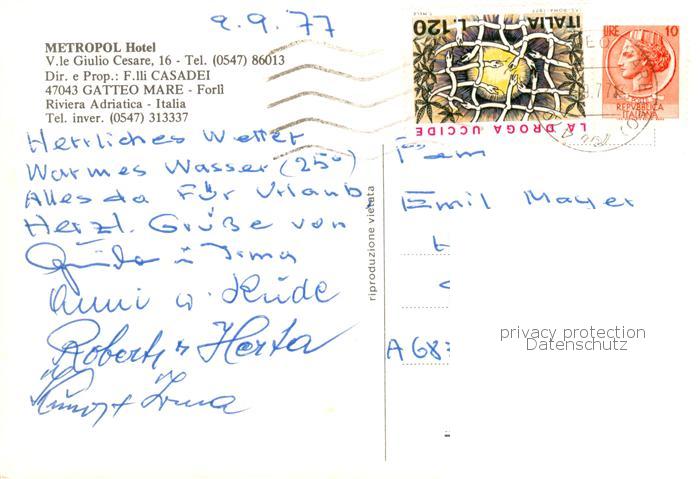 9.9.77
METROPOL Hotel
V.le Giulio Cesare, 16 - Tel. (0547) 86013
Dir. e Prop.: F.lli CASADEI
47043 GATTEO MARE - Forlì
Riviera Adriatica - Italia
Tel. inver. (0547) 313337
Herrliches Wetter
Warmes Wasser (25°)
Alles da für Urlaub
Herzl. Grüße von
Irma
Anni u.
Robert u Herta
Irma
riproduzione vietata
ITALIA
L.120
LA DROGA UCCIDE
LIRE 10
REPVBBLICA
ITALIANA
Fam
Emil Mayer
A 687
privacy protection
Datenschutz